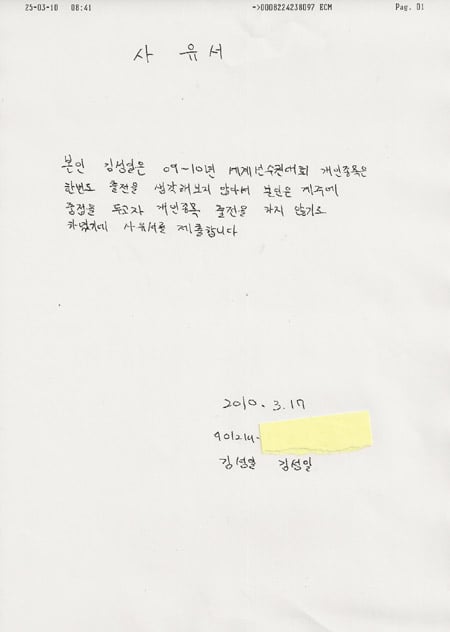 25-03-10 08:41 ->0008224238097 ECM Pag. 01
사 유 서
본인 김성일은 09-10년 세계선수권대회 개인종목은
한번도 출전을 생각해보지 않아서 본인은 계주에
중점을 두고자 개인종목 출전을 하지 않기로
하였기에 사유서를 제출합니다
2010. 3. 17
901214-
김성일 김성일